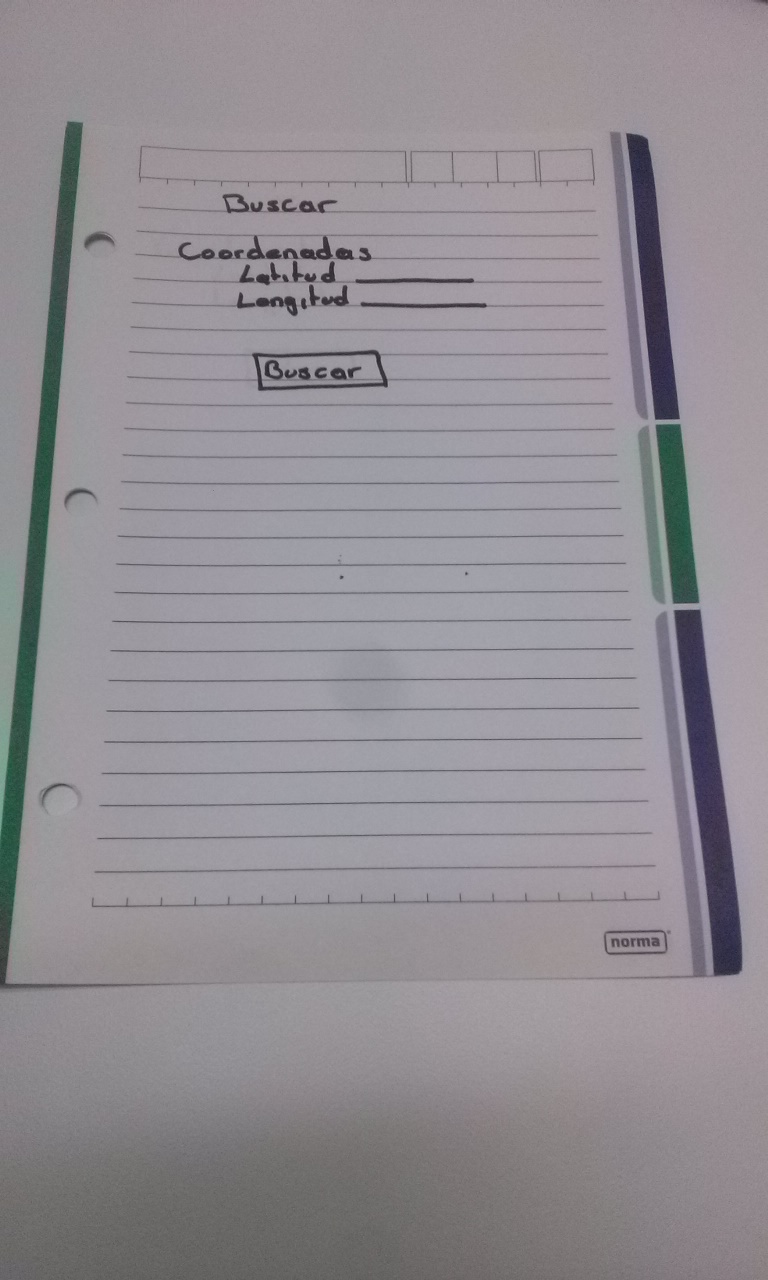 Buscar
Coordenadas
Latitud
Longitud
Buscar
norma